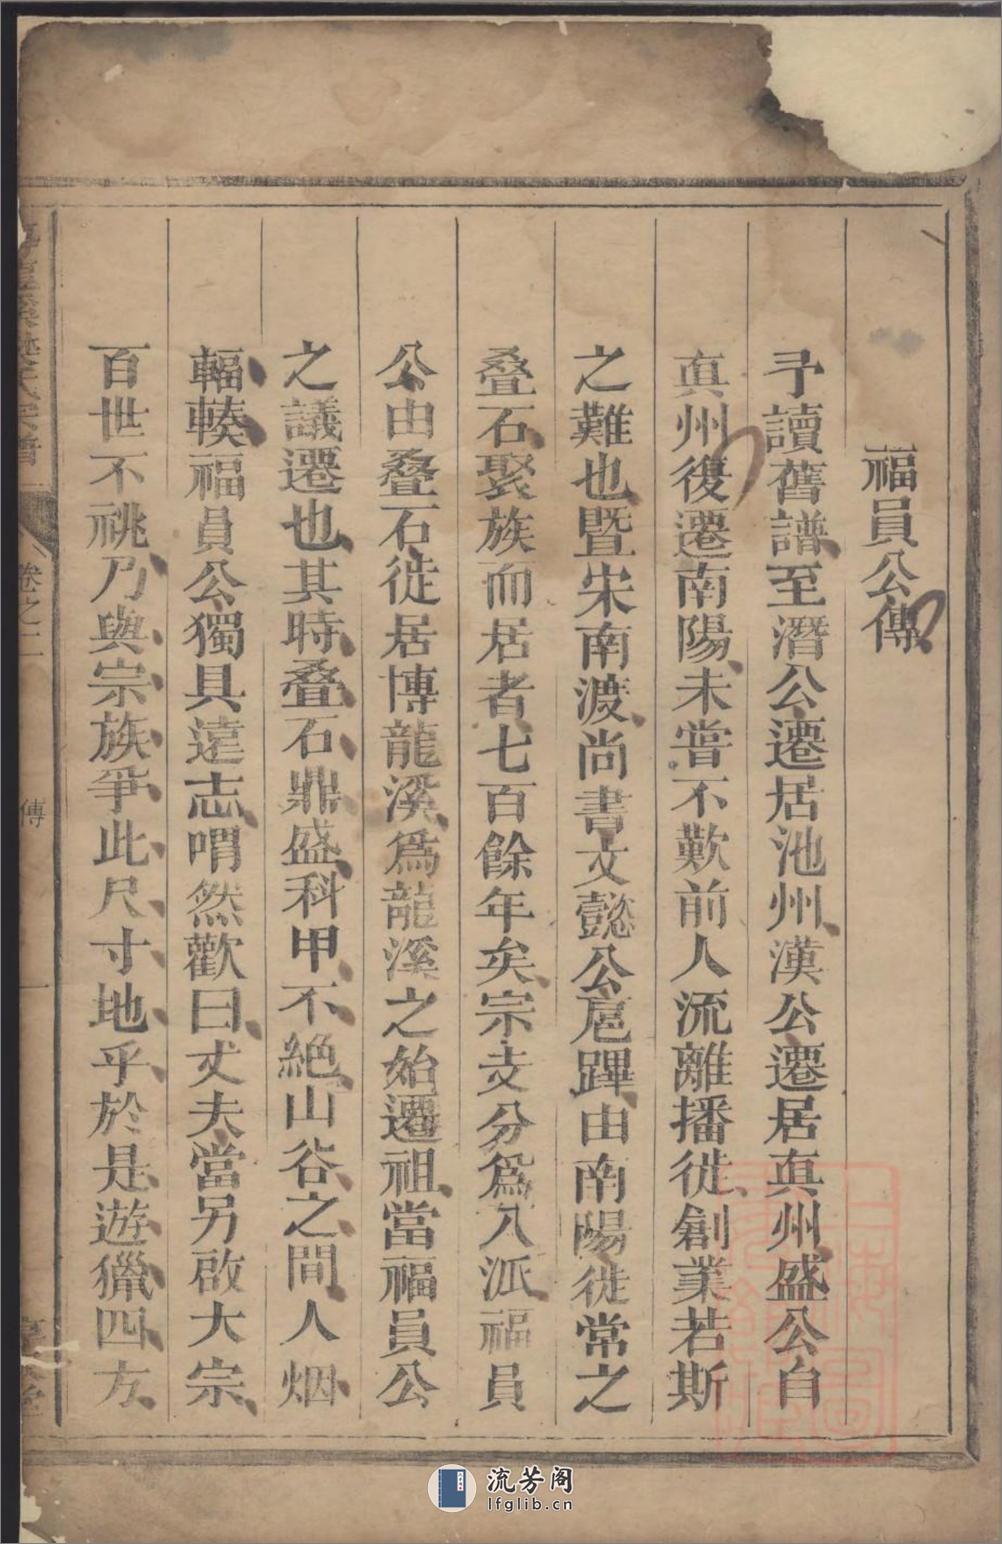 福員公傳
予讀舊譜至潛公遷居池州漢公遷居真州盛公自
真州復遷南陽未嘗不歎前人流離播徙創業若斯
之難也暨宋南渡尚書文懿公扈蹕由南陽徙常之
叠石聚族而居者七百餘年矣宗支分爲八派福員
公由叠石徙居博龍溪爲龍溪之始遷祖當福員公
之議遷也其時叠石鼎盛科甲不絕山谷之間人烟
輻輳福員公獨具遠志喟然歡曰丈夫當另啟大宗
百世不祧乃與宗族爭此尺寸地乎於是遊獵四方
氏宗譜
卷之二
傳
一
流芳阁
lfglib.cn